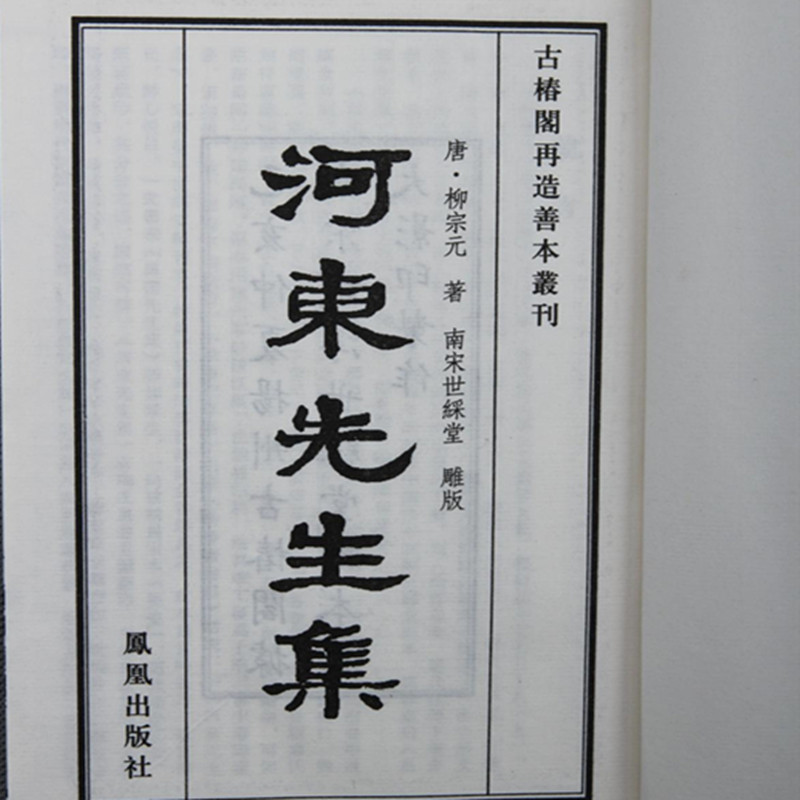 古椿閣再造善本叢刊
唐·柳宗元 著 南宋世綵堂 雕版
河東先生集
鳳凰出版社